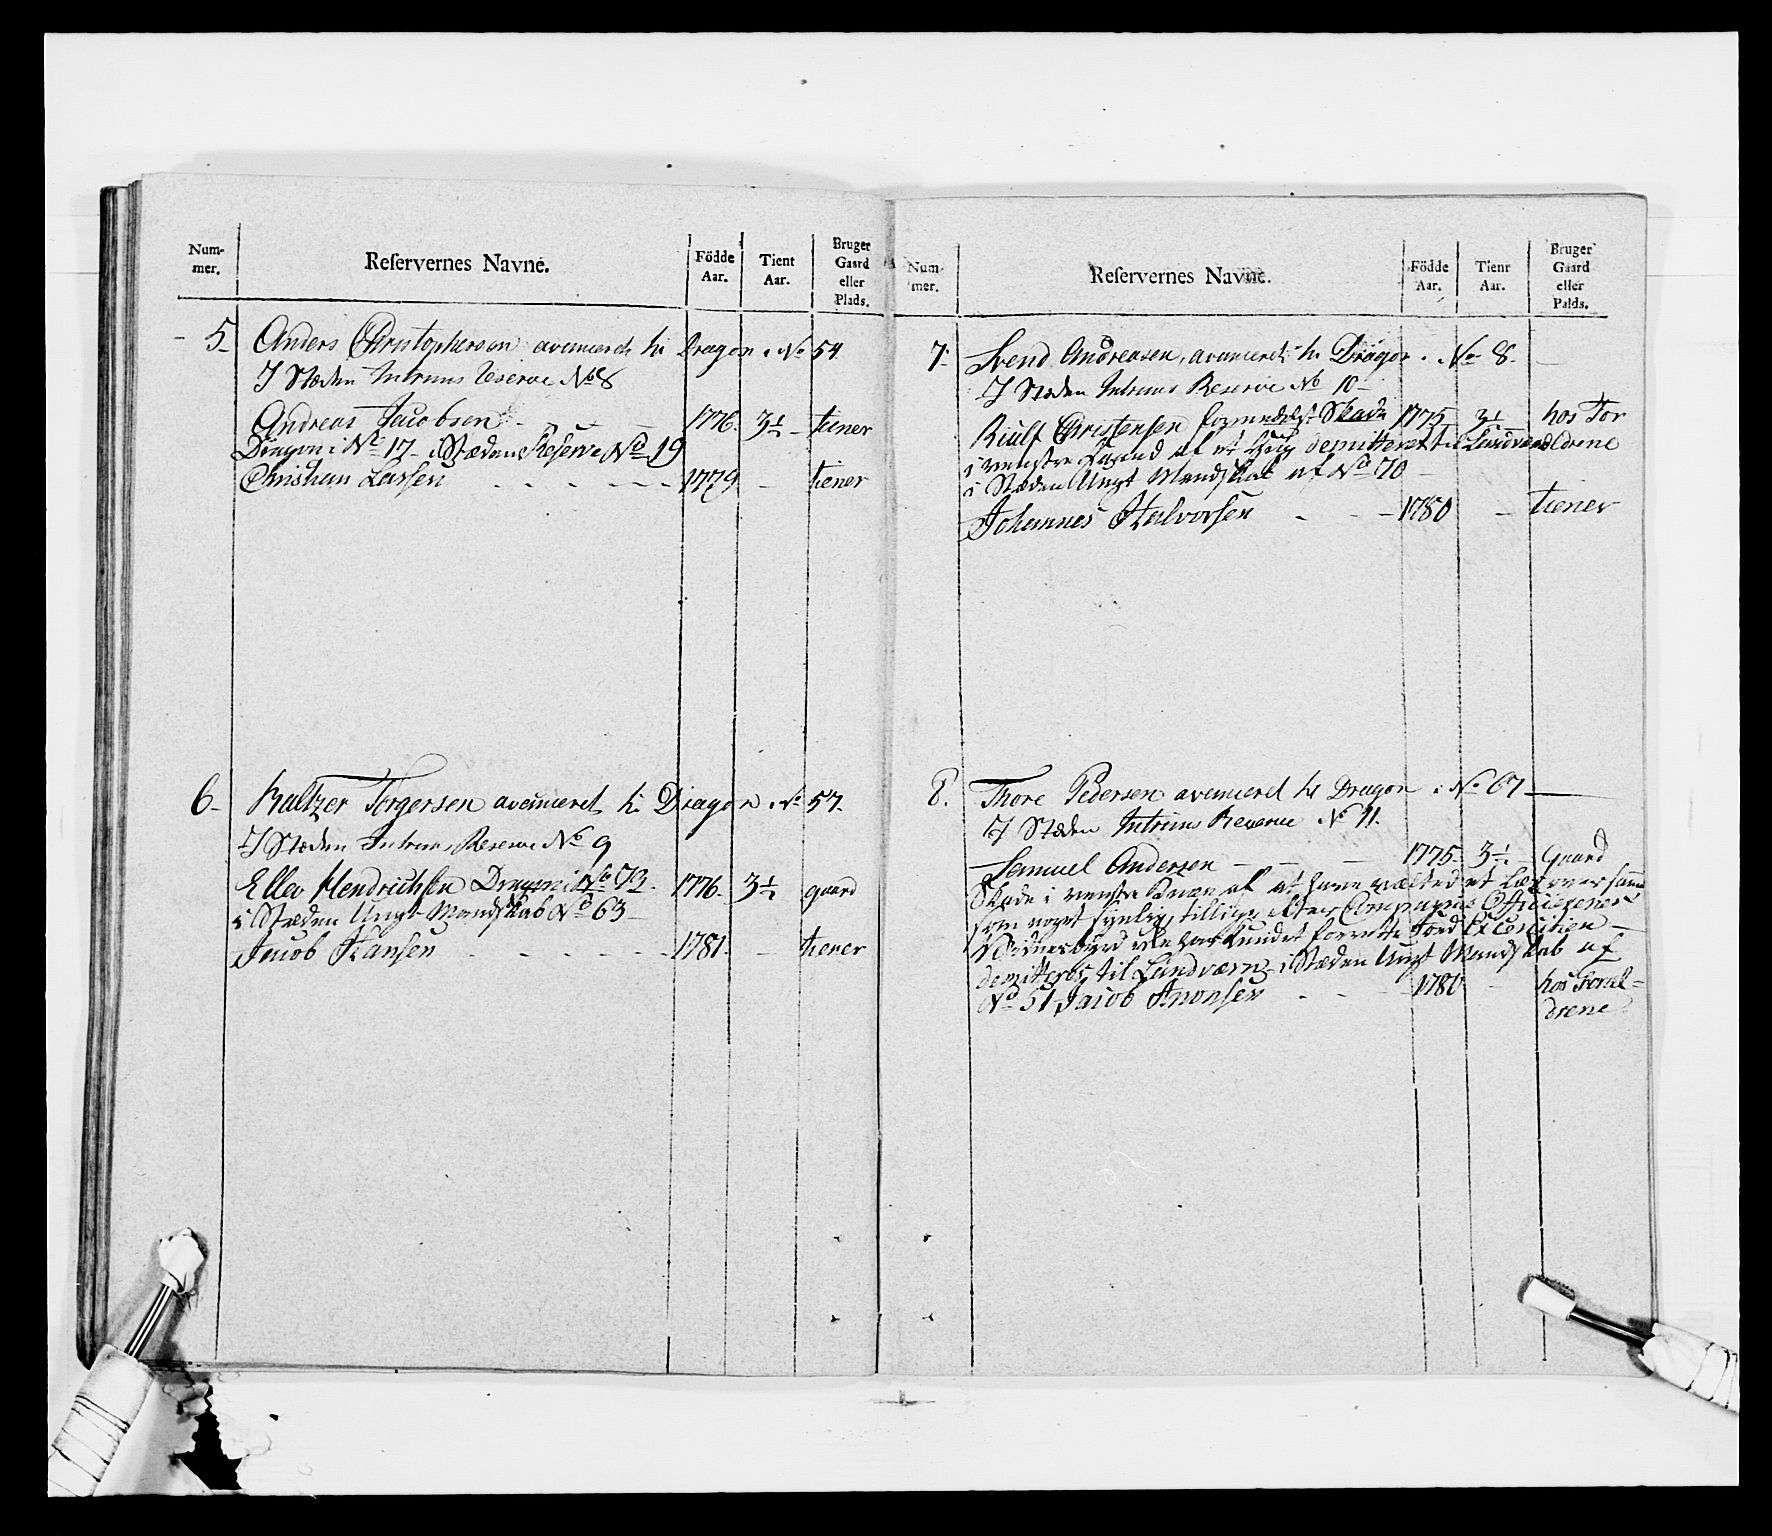 Num-
mer.
Reservernes Navne.
Födde
Aar.
Tient
Aar.
Bruger
Gaard
eller
Plads.
5 Anders Christophersen avanceret til Dragon i No 54
I Stæden Intrims Reserve No 8
Andreas Jacobsen 1776. 3½ tiener
Dragon i No 17 i Stæden Reserve No 19
Christian Larsen 1779 tiener
6 Baltzer Torgersen avanceret til Dragon i No 57.
I Stæden Intrims Reserve No 9
Ellev Hendrichsen Dragon i No 73. 1776. 3½ gaard
i Stæden Ungt Mandskab No 63
Jacob Hansen 1781. tiener
Num-
mer.
Reservernes Navne.
Födde
Aar.
Tienr
Aar.
Bruger
Gaard
eller
Palds.
7. Svend Andreasen, avanceret til Dragon i No 8.
I Stæden Intrims Reserve No 10
Christensen formedelst Skade 1775 3½ hos For
i venstre Haand af et Hug demitteret til Landværn ældrene
i Stæden Ungt Mandskab af No 70
Johannes Halvorsen 1780 tiener
8. Thore Pedersen avanceret til Dragon i No 67
I Stæden Intrims Reserve No 11.
Samuel Andersen 1775. 3½ Gaard
Skade i venstre Knæe af at have væltet et Læs over samme
som noget synlig, tillige efter Compagnie Officerernes
Vidnesbyrd ikke har kundet forrette Fod Exercitien
demitteres til Landværn i Stæden Ungt Mandskab af
No 51 Jacob Anonsen 1780 hos Foræl-
drene